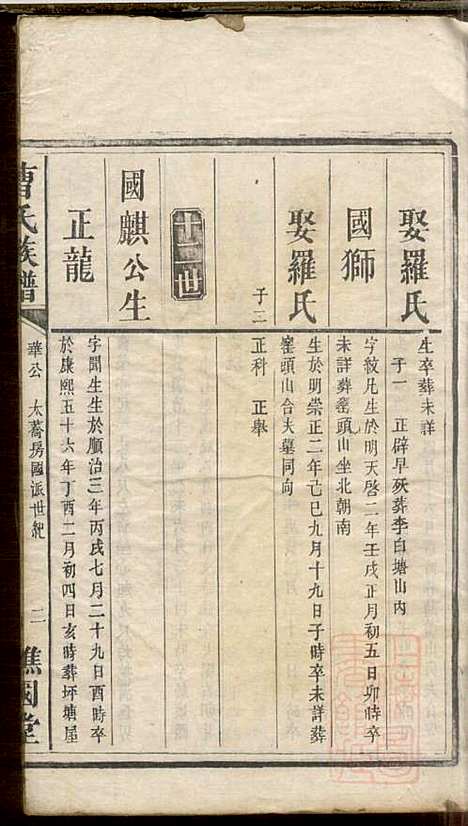 娶羅氏
生卒葬未詳
子一　正辟早殀葬李白塘山內
國獅
字紋凡生於明天啓二年壬戌正月初五日卯時卒
未詳葬窰頭山坐北朝南
娶羅氏
生於明崇正二年己巳九月十九日子時卒未詳葬
窰頭山合夫墓同向
子二
正科　正舉
十二世
國麒公生
正龍
字聞生生於順治三年丙戌七月二十九日酉時卒
於康熙五十六年丁酉二月初四日亥時葬坪塘屋
曹氏族譜
華公　太喬房國派世紀
二
譙國堂